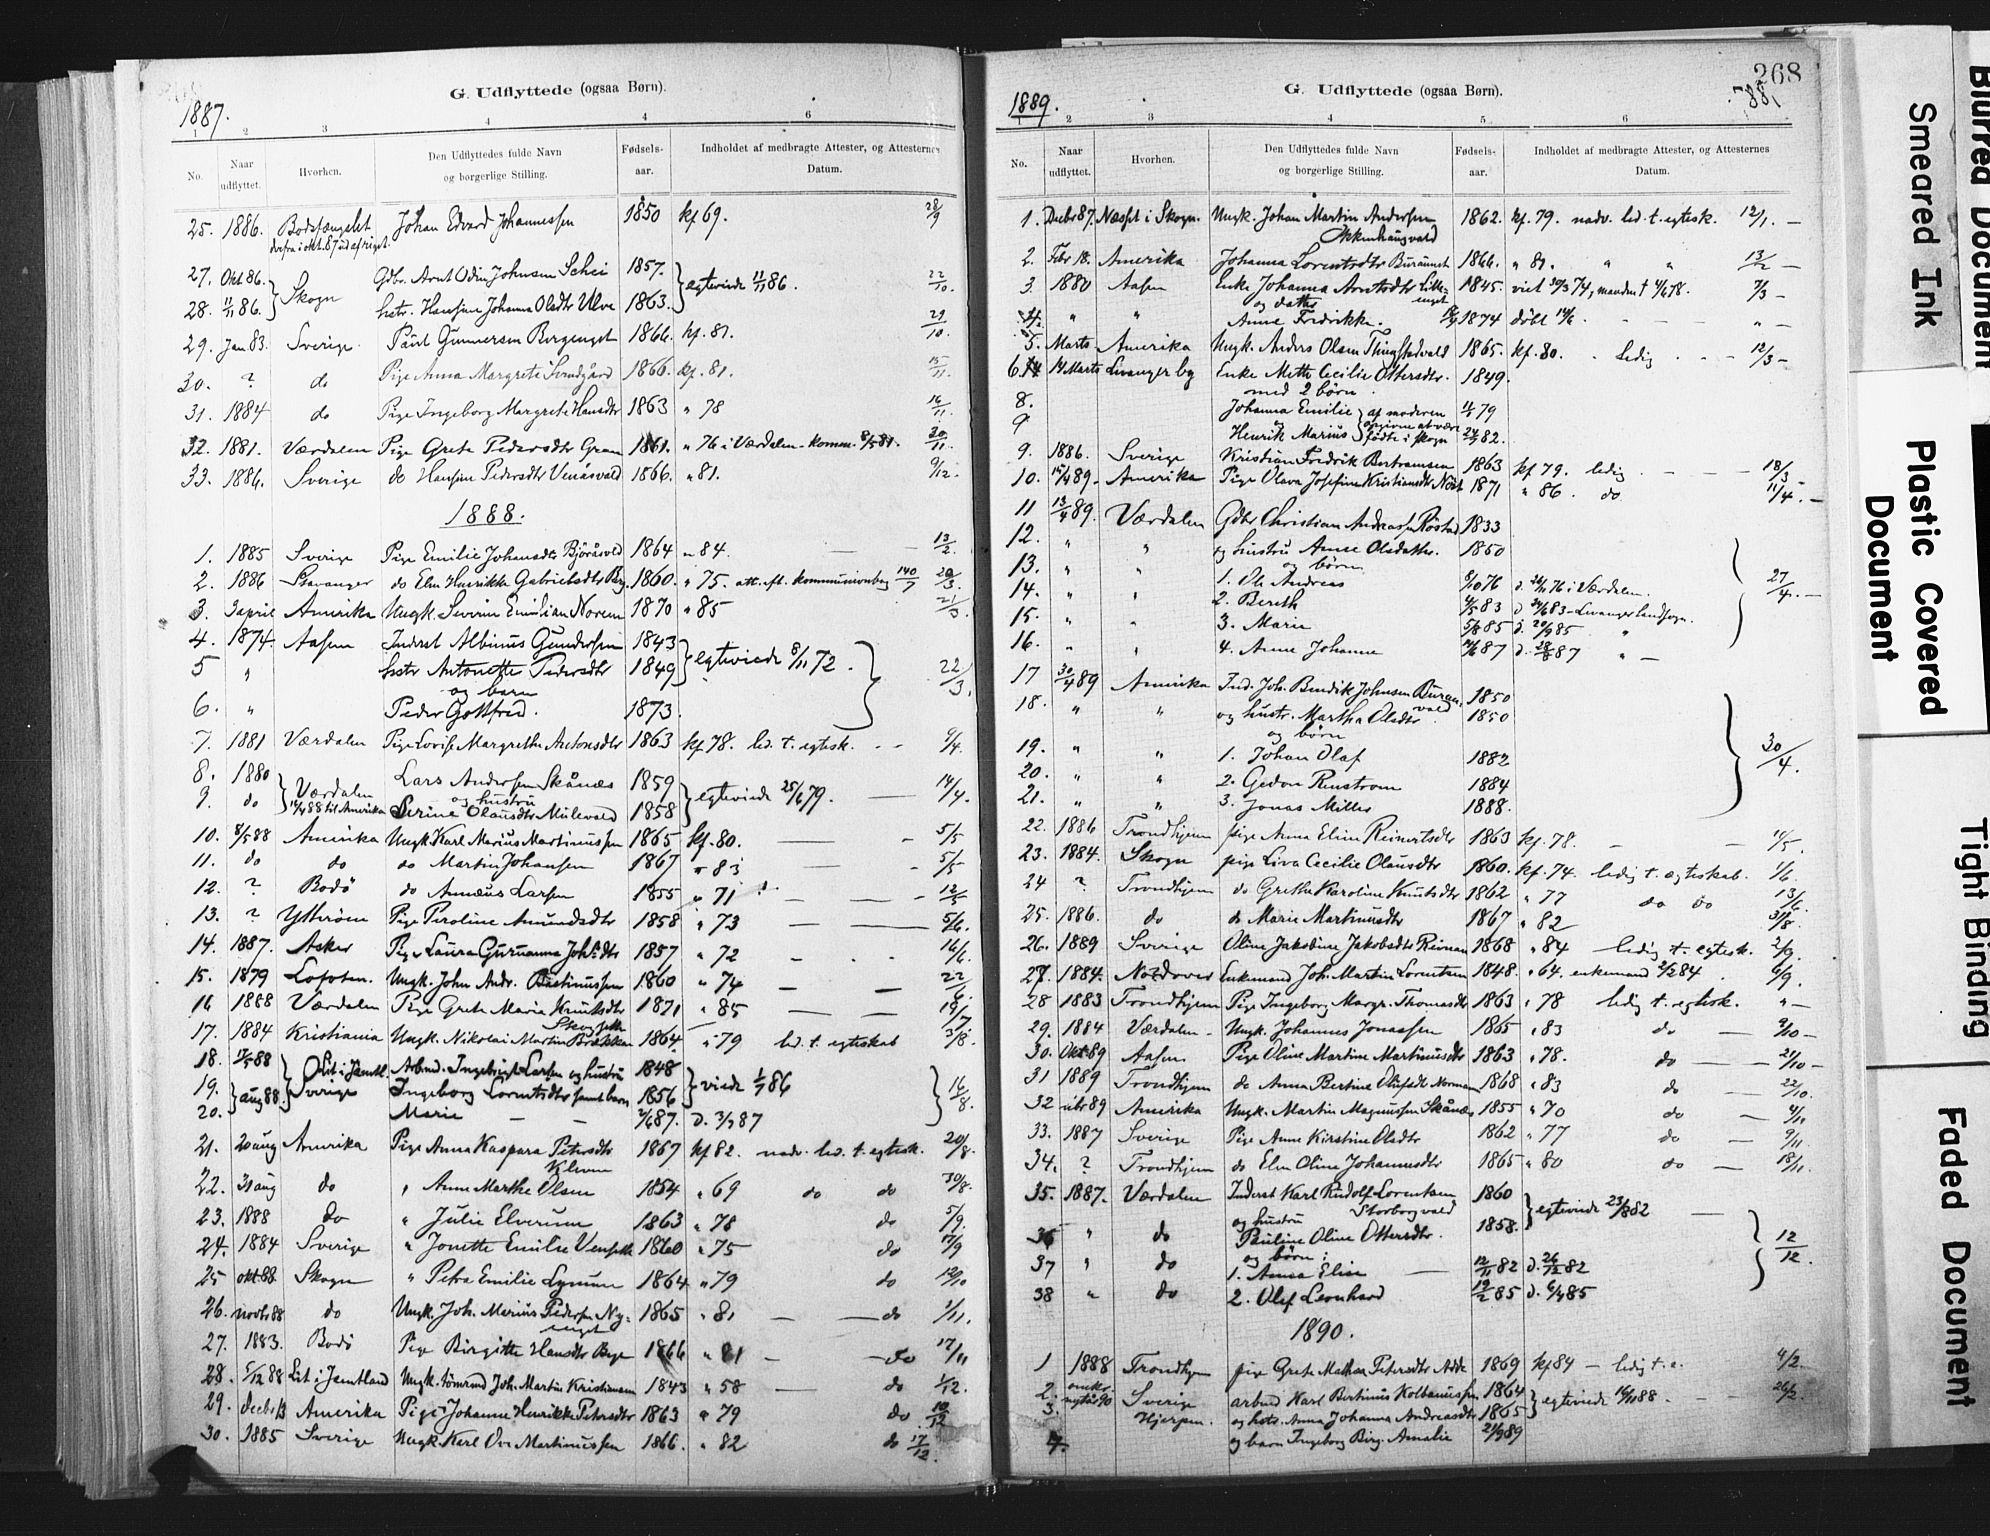 G. Udflyttede (ogsaa Børn).
1887.
1 2 3 4 4 6
No. Naar udflyttet. Hvorhen. Den Udflyttedes fulde Navn og borgerlige Stilling. Fødsels-aar. Indholdet af medbragte Attester, og Attesternes Datum.
25. 1886. Bodsfængslet Johan Edvard Johannessen 1850 kf 69. 28/9
derfra i okt. 87 ud af riget.
27. Okt 86. Skogn Gdbr. Arnt Odin Johnsen Schei 1857. egteviede 11/11 86. 22/10.
28. 11/11 86. hstr. Hansine Johanna Olsdtr Ulve 1863.
29. Jan 83. Sverige Paul Gunnersen Borgenget 1866. kf. 81. 29/10.
30. ? do Pige Anna Margrete 1866. kf. 81. 15/11.
31. 1884 do Pige Ingeborg Margrete Hansdtr 1863 " 78 16/11.
32. 1881. Værdalen Pige Grete Pedersdtr Gran 1861. " 76 i Værdalen - komm. 8/5 81. 30/11.
33. 1886. Sverige do Hansine Pedersdtr Venåsvald 1866. " 81. 9/12.
1888.
1. 1885 Sverige Pige Emilie Johansdtr Björåsvald 1864 " 84. — — 13/2.
2. 1886 Stavanger do Elen Henrikke Gabrielsdtr Berg. 1860. " 75. att. ft. kommunionbog 140/7 20/3.
3. 3 april Amerika Ungk. Severin Emilian Norem 1870 " 85 21/3.
4. 1874. Aasen Inderst Albinus Gundersen 1843 egteviede 8/11 72. 22/3.
5 " hstr Antonette Pedersdtr 1849
og barn
6. " Peder Gottfred. 1873.
7. 1881 Værdalen Pige Lovise Margrethe Antonsdtr 1863 kf 78. led. t. egtesk. - - 9/4.
8. 1880 Værdalen Lars Andersen Skånes 1859 egteviede 25/6 79. — 14/4.
og hustru
9. do 14/4 88 til Amerika Serine Olausdtr Mulevald 1858
10. 8/5 88 Amerika Ungk. Karl Marius Martinussen 1865 kf. 80. — - 5/5
11. do do do Martin Johansen 1867 " 83 - 5/5
12. ? Bodö do Annæus Larsen 1855 " 71 — — 12/5
13. ? Ytterøen Pige Peroline Amundsdtr 1858 " 73 — — 5/6.
14. 1887. Asker Pige Laura Guruanna Joh.sdtr 1857 " 72 - . - 16/6.
15. 1879 Lofoten. Ungk. John Andr. Bastinussen 1860 " 74 — — 22/6.
16 1888 Værdalen Pige Grete Marie Knutsdtr 1871 " 85 — — 19/7
17. 1884 Kristiania Ungk. Nikolai Martin Brækken 1864 " 79 led. t. egteskab 3/8.
18. 17/5 88 Lit i Jämtl. Arbmd. Ingebrigt Larsen og hustru 1848 viede 1/7 86 16/8.
19. aug 88. Sverige Ingeborg Lorntsdtr samt barn 1856
20. Marie — — 2/6 87. D. 3/7 87
21. 20 aug Amerika Pige Anna Kaspara Petersdtr 1867 kf 82. nadv. led. t. egtesk. 20/8.
Kleven
22. 31 aug do " Anne Marthe Olsen 1854 " 69 do do 30/8.
23. 1888 do " Julie Elverum 1863 " 78 do 5/9.
24. 1884 Sverige " Jonette Emilie 1860 " 75 do 17/9
25 okt 88. Skogn " Petra Emilie Lynum 1864 " 79 do 12/10
26. novbr 88 do Ungk. Joh. Marius Pedersen Ny- 1865 " 81 — — do 1/11.
enget
27. 1883. Bodö Pige Birgitte Hansdtr Bye 1866 " 81 — — do 17/11
28. 5/12 88 Lit i Jemtland Ungk. tömrmd Joh. Martin Kristiansen 1843 " 58 — do 1/12.
29. decbr 13 Amerika Pige Johanne Henrikke Petersdtr 1863 " 79 do 10/12
30. 1885 Sverige Ungk. Karl Ove Martinussen 1866. " 82 do 17/12.
268
G. Udflyttede (ogsaa Børn).
1889. 1887.
1 2 3 4 5 6
No. Naar udflyttet. Hvorhen. Den Udflyttedes fulde Navn og borgerlige Stilling. Fødsels-aar. Indholdet af medbragte Attester, og Attesternes Datum.
1. Decbr 87. Næsset i Skogn. Ungk. Johan Martin Andersen 1862. kf. 79. nadv. led. t. egtesk. 12/1. —
Okkenhaugvald
2. Febr 18. Amerika Johanna Lorentsdtr Buraunet 1866. " 81. " " 13/2 —
3. 1880 Aasen Enke Johanna Arntsdtr Lille- 1845. viet 30/3 74, manden † 4/6 78. 7/3 —
og datter enget
4. " " Anne Fredrikke. 1874 döbt 14/6 - - - " —
5. Marts Amerika Ungk. Anders Olsen Thingstadvald 1865. kf. 80. - ledig - - - 12/3 —
6. 14 Marts Levanger by Enke Mette Cecilie Ottersdtr. 1849.
med 2 børn.
8. Johanna Emilie af moderen 11/5 79
og opgivne at være
9 Henrik Marius födte i Skogn 24/7 82.
9. 1886. Sverige Kristian Fredrik Bertramsen 1863 kf 79. ledig — — 18/3 —
10. 15/4 89. Amerika Pige Olava Josefine Kristiansdtr 1871 " 86. do 11/4. —
11 13/4 89. Værdalen Gdbr Christian Andreassen Röstad 1833
12. " " og hustru Anne Olsdatter. 1850
og börn 27/4. —
13. " " 1. Ole Andreas 8/10 76 d. 26/11 76 i Værdalen.
14. " " 2. Bereth 4/5 83 d 24/6 83 - Levanger landsogn.
15. " " 3. Marie 5/8 85 d. 20/9 85 "
16. " " 4. Anne Johanne 21/6 87 d. 28/8 87 " —
17 30/4 89 Amerika Ind. Joh. Bendik Johnsen Buran- 1850
vald
18. " " og hustr. Martha Olsdtr. 1850
og börn
19. " " 1. Johan Olaf 1882 30/4.
20. " " 2. Gedon Renstrom 1884
21. " " 3. Jonas Miller 1888.
22. 1886 Trondhjem pige Anna Elen Reinertsdtr 1863 kf. 78. — — 11/5.
23. 1884. Skogn pige Liva Cecilie Olausdtr 1860. kf. 74. ledig t. egteskab. 1/6.
24 ? Trondhjem do Grethe Karoline Knutsdtr 1862 " 77 do do 13/6.
25. 1886. do do Marie Martinusdtr 1867 " 82 31/8.
26. 1889 Sverige Oline Jakobine Jakobsdtr Reinan 1868 " 84 ledig t. egtesk. 2/9.
27. 1884. Enkemand Joh. Martin Lorentsen 1848. " 64. enkemand 2/2 84. 6/9.
28 1883 Trondhjem Pige Ingeborg Margr. Thomasdtr 1863 " 78 ledig t. egtesk. " —
29. 1884 Værdalen - Ungk. Johannes Jonassen 1865 " 83 do — 9/10 —
30. Okt 89 Aasen Pige Oline Martine Martinusdtr 1863 " 78. do — 21/10 —
31 1889 Trondhjem do Anna Bertine Olufsdt Norman 1868 " 83 do — 22/10.
32 89 Amerika Ungk. Martin Magnussen Skånes 1855 " 70 do — 4/11
33. 1887 Sverige Pige Anne Kirstine Olsdtr 1862 " 77 do — 9/11
34. ? Trondhjem do Elen Oline Johannesdtr 1865 " 80 do — 18/11.
35. 1887. Værdalen Inderst Karl Rudolf Lorentsen 1860 egteviede 23/8 82 —
og hustru Storborgvald
36 " do Pauline Oline Ottersdtr. 1858. 12/12.
og börn:
37 " do 1. Anna Elise — 12/11 82 d. 26/12 82
38 " do 2. Olef Leonhard 19/2 85 d. 6/4 85
1890.
1 1888 Trondhjem pige Grete Mathea Petersdtr Adde 1869 kf 84 — ledig t. e. 4/2.
2. omkr. nytår 90 Sverige arbmd Karl Bertinus Kolbanussen 1864 egteviede 16/11 88. — — 26/2.
3. Hjerpen. og hstr. Anna Johanna Andreasdtr 1865
4. og barn Ingeborg Birg. Amalie 21/3 89
Blurred Document
Smeared Ink
Plastic Covered Document
Tight Binding
Faded Document